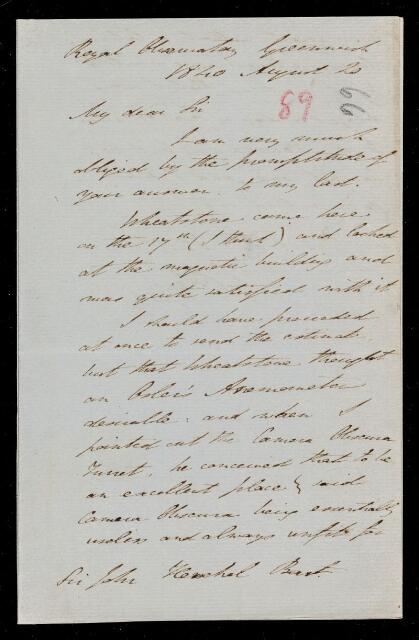 Royal Observatory Greenwich
1840 August 20
89
99
My dear Sir
I am very much
obliged by the promptitude of
your answer to my last.
Wheatstone came here
on the 17th (I think) and looked
at the magnetic building and
was quite satisfied with it
I should have proceeded
at once to send the estimate
but that Wheatstone thought
an Osler's Anemometer
desirable: and when I
pointed out the Camera Obscura
Turret, he conceived that to be
an excellent place, said
Camera Obscura being essentially
useless and always unfit for
Sir John Herschel Bart.